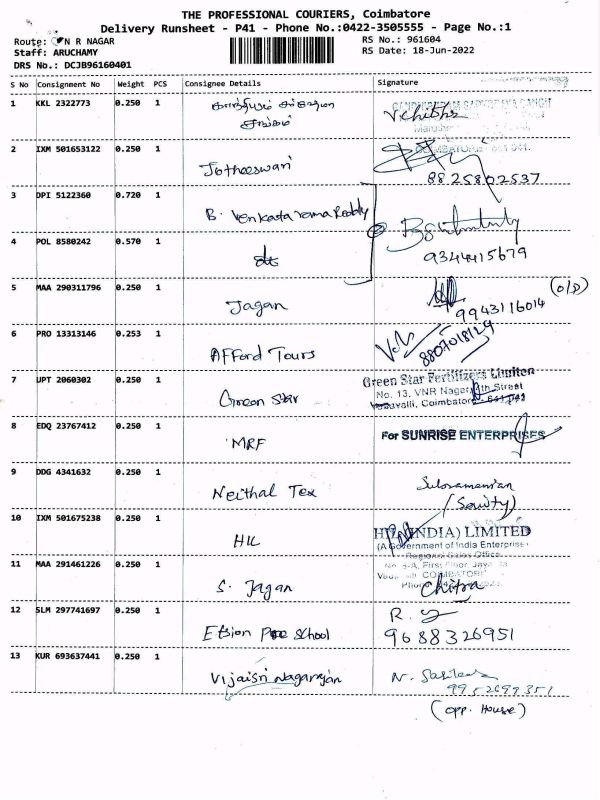 THE PROFESSIONAL COURIERS, Coimbatore
Delivery Runsheet - P41 - Phone No.:0422-3505555 - Page No.:1
Route: N R NAGAR
RS No.: 961604
Staff: ARUCHAMY
RS Date: 18-Jun-2022
DRS No.: DCJB96160401
S No Consignment No Weight PCS Consignee Details Signature
1 KKL 2322773 0.250 1
சங்கம்
2 IXM 501653122 0.250 1 Jotheeswari
8825802537
3 DPI 5122360 0.720 1 B. Venkata rama Reddy
4 POL 8580242 0.570 1 dt
9344415679
5 MAA 290311796 0.250 1 Jagan
9943116014 (o/p)
6 PRO 13313146 0.253 1 Afford Tours
8807018129
7 UPT 2060302 0.250 1 Green Star
Green Star Fertilizers Limited
No. 13, VNR Nagar, 4th Street
Coimbatore
8 EDQ 23767412 0.250 1 MRF
For SUNRISE ENTERPRISES
9 DDG 4341632 0.250 1 Neithal Tex
Subramanian
10 IXM 501675238 0.250 1 HIL
(INDIA) LIMITED
(A Government of India Enterprise
Regional Sales Office
11 MAA 291461226 0.250 1 S. Jagan
First Floor,
Chitra
12 SLM 297741697 0.250 1 Etsion Pre School
9688326951
13 KUR 693637441 0.250 1 Vijaisri Nagarajan
(opp. House)